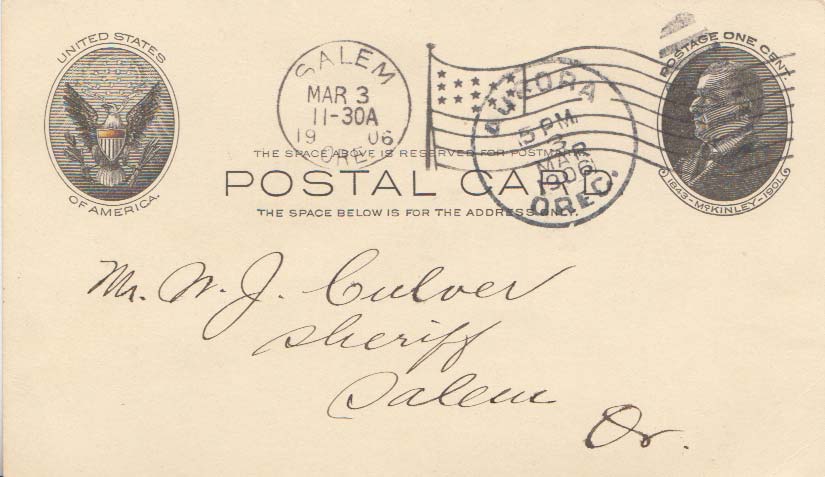 UNITED STATES
OF AMERICA.
SALEM
MAR 3
11-30A
19 06
ORE.
AURORA
5 PM.
3
MAR
1906
OREG.
POSTAGE ONE CENT
1843-McKINLEY-1901.
THE SPACE ABOVE IS RESERVED FOR POSTMARK.
POSTAL CARD
THE SPACE BELOW IS FOR THE ADDRESS ONLY.
Mr. W. J. Culver
Sheriff
Salem
Or.